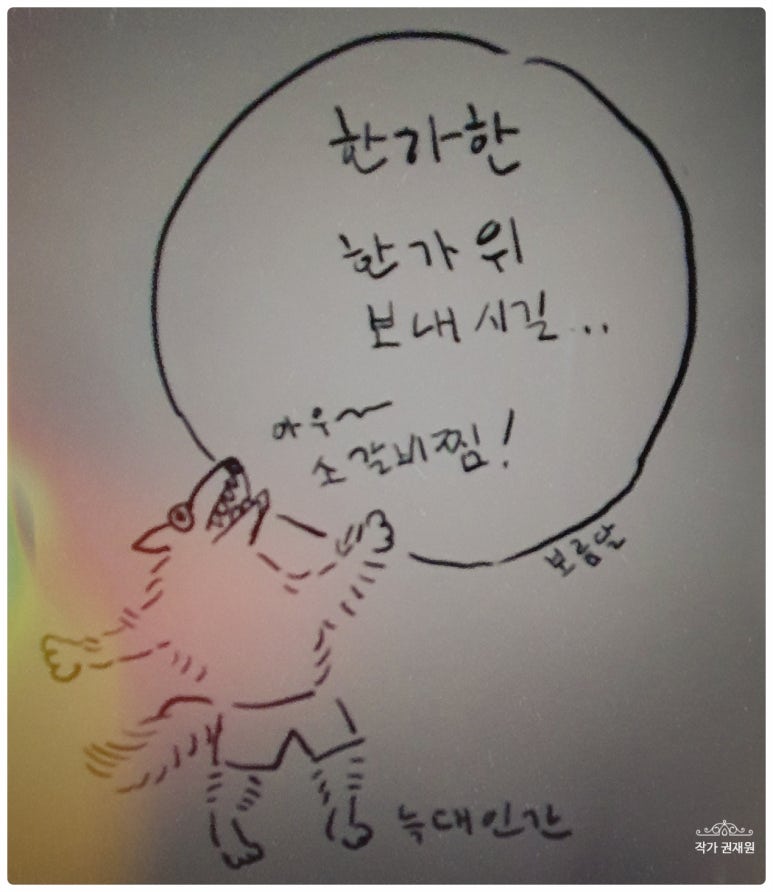 한가한
한가위
보내시길...
아우~
소갈비찜!
보름달
늑대인간
작가 권재원